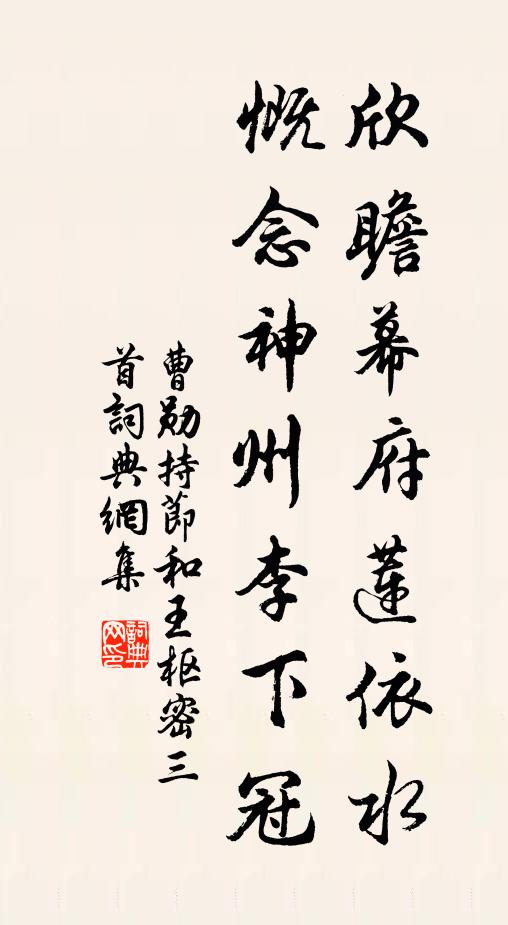 欣瞻幕府蓮依水
慨念神州李下冠
曹勛持節和王枢密三
首詞典網集
詞典网印